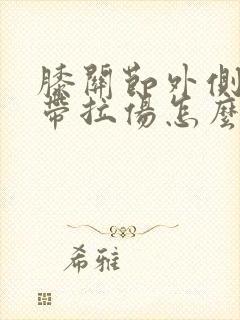 膝關節外側
帶拉傷怎麼
希雅